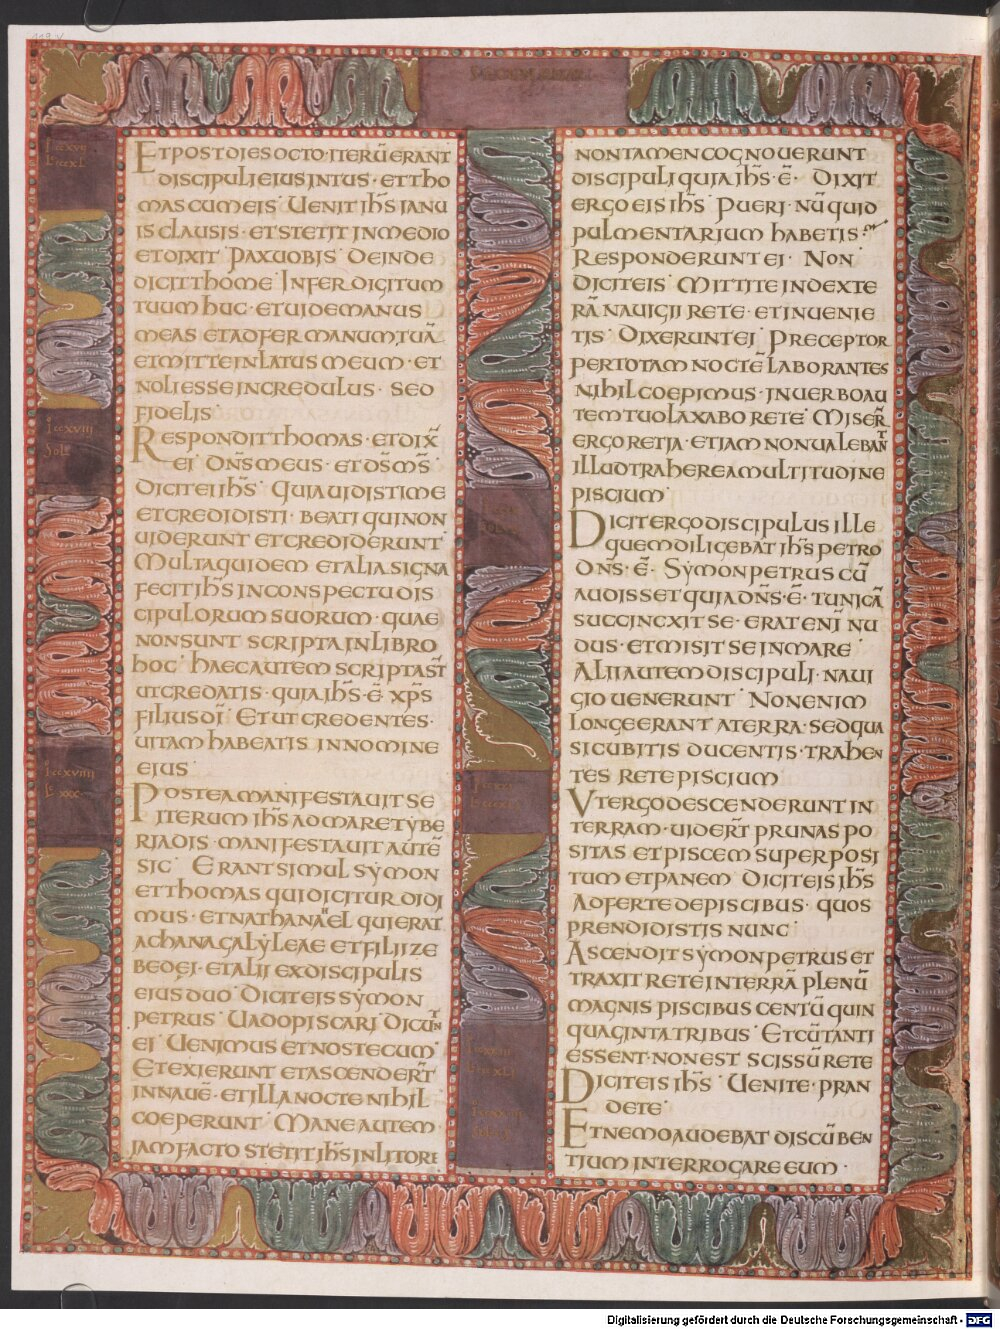 119v
ETPOSTDIESOCTO·ITERŪERANT
DISCIPULIEIUSINTUS·ETTHO
MASCUMEIS UENIT IH̄S IANU
IS CLAUSIS·ETSTETIT INMEDIO
ETDIXIT PAXUOBIS DEINDE
DICITTHOME INFERDIGITUM
TUUM HUC·ETUIDEMANUS
MEAS ETADFERMANUM,TUĀ
ETMITTEINLATUS MEUM·ET
NOLIESSEINCREDULUS·SED
FIDELIS
RESPONDITTHOMAS·ETDIX̄
EI DN̄SMEUS·ETDS̄M̄S
DICITEIIH̄S QUIAUIDISTIME
ETCREDIDISTI·BEATI QUINON
UIDERUNT ETCREDIDERUNT
MULTAQUIDEM ETALIASIGNA
FECITIH̄S INCONSPECTUDIS
CIPULORUM SUORUM·QUAE
NONSUNT SCRIPTAINLIBRO
HOC HAECAUTEM SCRIPTAS̄T
UTCREDATIS·QUIAIH̄S·Ē XP̄S
FILIUSDĪ ETUTCREDENTES·
UITAMHABEATIS INNOMINE
EIUS
POSTEAMANIFESTAUITSE
ITERUM IH̄S ADMARETYBE
RIADIS·MANIFESTAUIT AUTĒ
SIC ERANTSIMUL SYMON
ETTHOMAS QUIDICITUR DIDI
MUS·ETNATHANAHEL QUIERAT
ACHANAGALYLEAE ETFILIIZE
BEDEI·ETALII EXDISCIPULIS
EIUSDUO DICITEIS SYMON
PETRUS UADOPISCARI DICUNT
EI UENIMUS ETNOSTECUM
ETEXIERUNT ETASCENDER̄T
INNAUĒ·ETILLANOCTENIHIL
COEPERUNT MANEAUTEM
IAMFACTO STETITIH̄S INLITORE
NONTAMENCOGNOUERUNT
DISCIPULIQUIAIH̄S·Ē· DIXIT
ERGOEISIH̄S PUERI·NŪQUID
PULMENTARIUM HABETIS
RESPONDERUNTEI· NON
DICITEIS MITTITEINDEXTE
RĀNAUIGII RETE·ETINUENIE
TIS DIXERUNTEI PRECEPTOR
PERTOTAMNOCTĒLABORANTES
NIHILCOEPIMUS·INUERBOAU
TEMTUOLAXABO RETE MISER̄
ERGORETIA·ETIAMNONUALEBANT
ILLUDTRAHEREAMULTITUDINE
PISCIUM
DICITERGODISCIPULUSILLE
QUEMDILIGEBATIH̄SPETRO
DN̄S·Ē· SYMONPETRUSCŪ
AUDISSETQUIADN̄S·Ē· TUNICĀ
SUCCINCXITSE·ERATENĪ NU
DUS·ETMISITSEINMARE
ALIIAUTEMDISCIPULI·NAUI
GIOUENERUNT NONENIM
LONGEERANT ATERRA·SEDQUA
SICUBITIS DUCENTIS·TRAHEN
TES RETEPISCIUM
UTERGODESCENDERUNTIN
TERRAM·UIDER̄T PRUNASPO
SITAS ETPISCEMSUPERPOSI
TUMETPANEM DICITEISIH̄S
ADFERTEDEPISCIBUS·QUOS
PRENDIDISTIS NUNC
ASCENDITSYMONPETRUSET
TRAXITRETEINTERRĀPLENŪ
MAGNIS PISCIBUS CENTŪQUIN
QUAGINTATRIBUS ETCŪTANTI
ESSENT·NONEST SCISSŪRETE
DICITEISIH̄S UENITE·PRAN
DETE
ETNEMOAUDEBAT DISCŪBEN
TIUMINTERROGAREEUM·
Digitalisierung gefördert durch die Deutsche Forschungsgemeinschaft - DFG